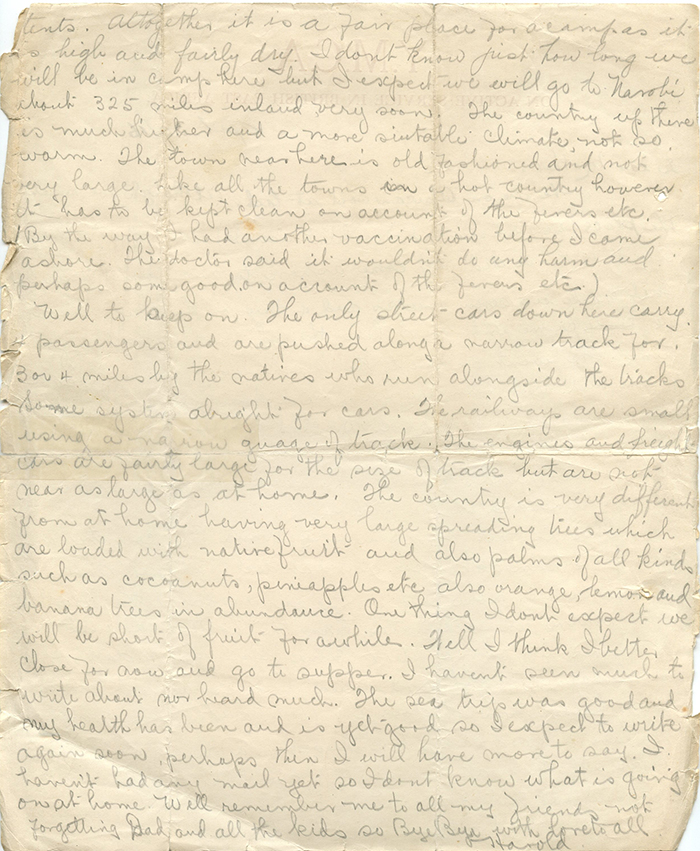 tents. Altogether it is a fair place for a camp as it
is high and fairly dry. I dont know just how long we
will be in camp here but I expect we will go to Narobi
about 325 miles inland very soon. The country up there
is much higher and a more suitable climate, not so
warm. The town near here is old fashioned and not
very large. Like all the towns in a hot country however
it has to be kept clean on account of the fevers etc.
(By the way I had another vaccination before I came
ashore. The doctor said it wouldn't do any harm and
perhaps some good on account of the fevers etc.)
Well to keep on. The only street cars down here carry
4 passengers and are pushed along a narrow track for
3 or 4 miles by the natives who run alongside the tracks
Some system alright for cars. The railways are small
using a narrow guage of track. The engines and freight
cars are fairly large for the size of track but are not
near as large as at home. The country is very different
from at home having very large spreading trees which
are loaded with native fruit and also palms of all kinds
such as cocoanuts, pineapples etc also orange, lemon and
banana trees in abundance. One thing I dont expect we
will be short of fruit for awhile. Well I think I better
close for now and go to supper. I havent seen much to
write about nor heard much. The sea trip was good and
my health has been and is yet good so I expect to write
again soon, perhaps then I will have more to say. I
haven't had any mail yet so I dont know what is going
on at home. Well remember me to all my friends not
forgetting Dad and all the kids so Bye Bye with love to all
Harold